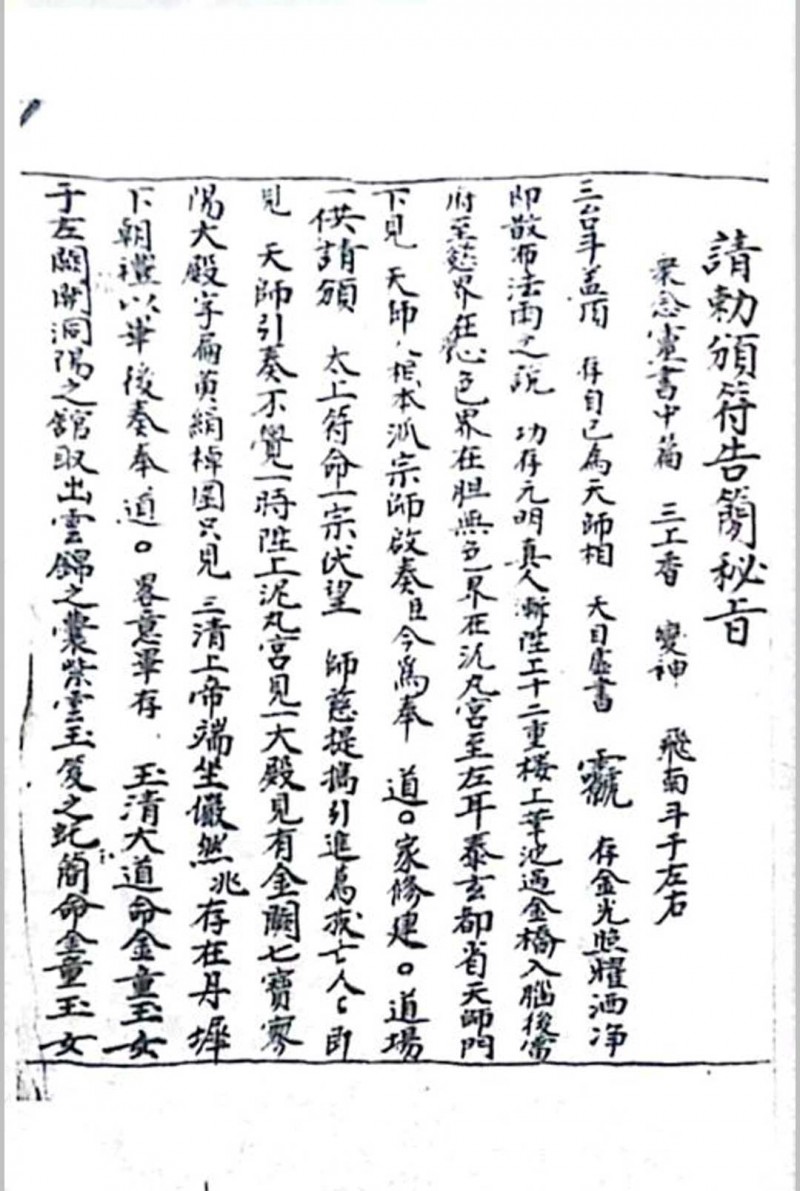 請勅頒符告簡秘旨
衆念靈書中篇 三上香 變神 飛南斗于左右
三台斗盖頂 存自己為天師相 天目虛書 存金光照耀洒净
即散布法雨之說 功存元明真人漸陞上十二重楼上華池過金橋入腦後
府至慾界在心色界在胆無色界在泥丸宮至左耳泰玄都省天師門
下見 天師八根本派宗師啟奏且今為奉 道○家修建○道場
一供請頒 太上符命一宗伏望 師慈提携引進為拔亡人〻即
見 天師引奏不覺一時陞上泥丸宮見一大殿見有金闕七寶寥
陽大殿字扁黄絹棹圍只見 三清上帝端坐儼然兆存在丹墀
下朝禮以畢後奏奉 道○畧意畢存 玉清大道命金童玉女
于左闕開洞陽之舘取出雲錦之囊紫雲玉笈之訖簡命金童玉女